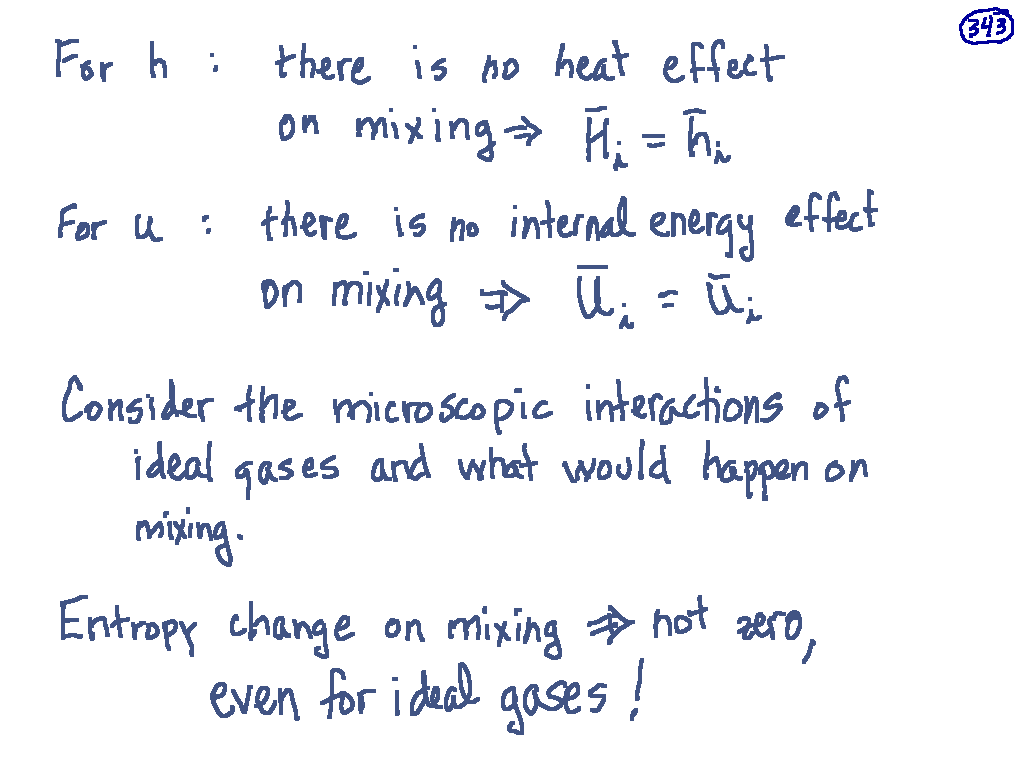 343
For h : there is no heat effect
on mixing ⇒ H̄ᵢ = h̄ᵢ
For u : there is no internal energy effect
on mixing ⇒ Ūᵢ = ūᵢ
Consider the microscopic interactions of
ideal gases and what would happen on
mixing.
Entropy change on mixing ⇒ not zero,
even for ideal gases !